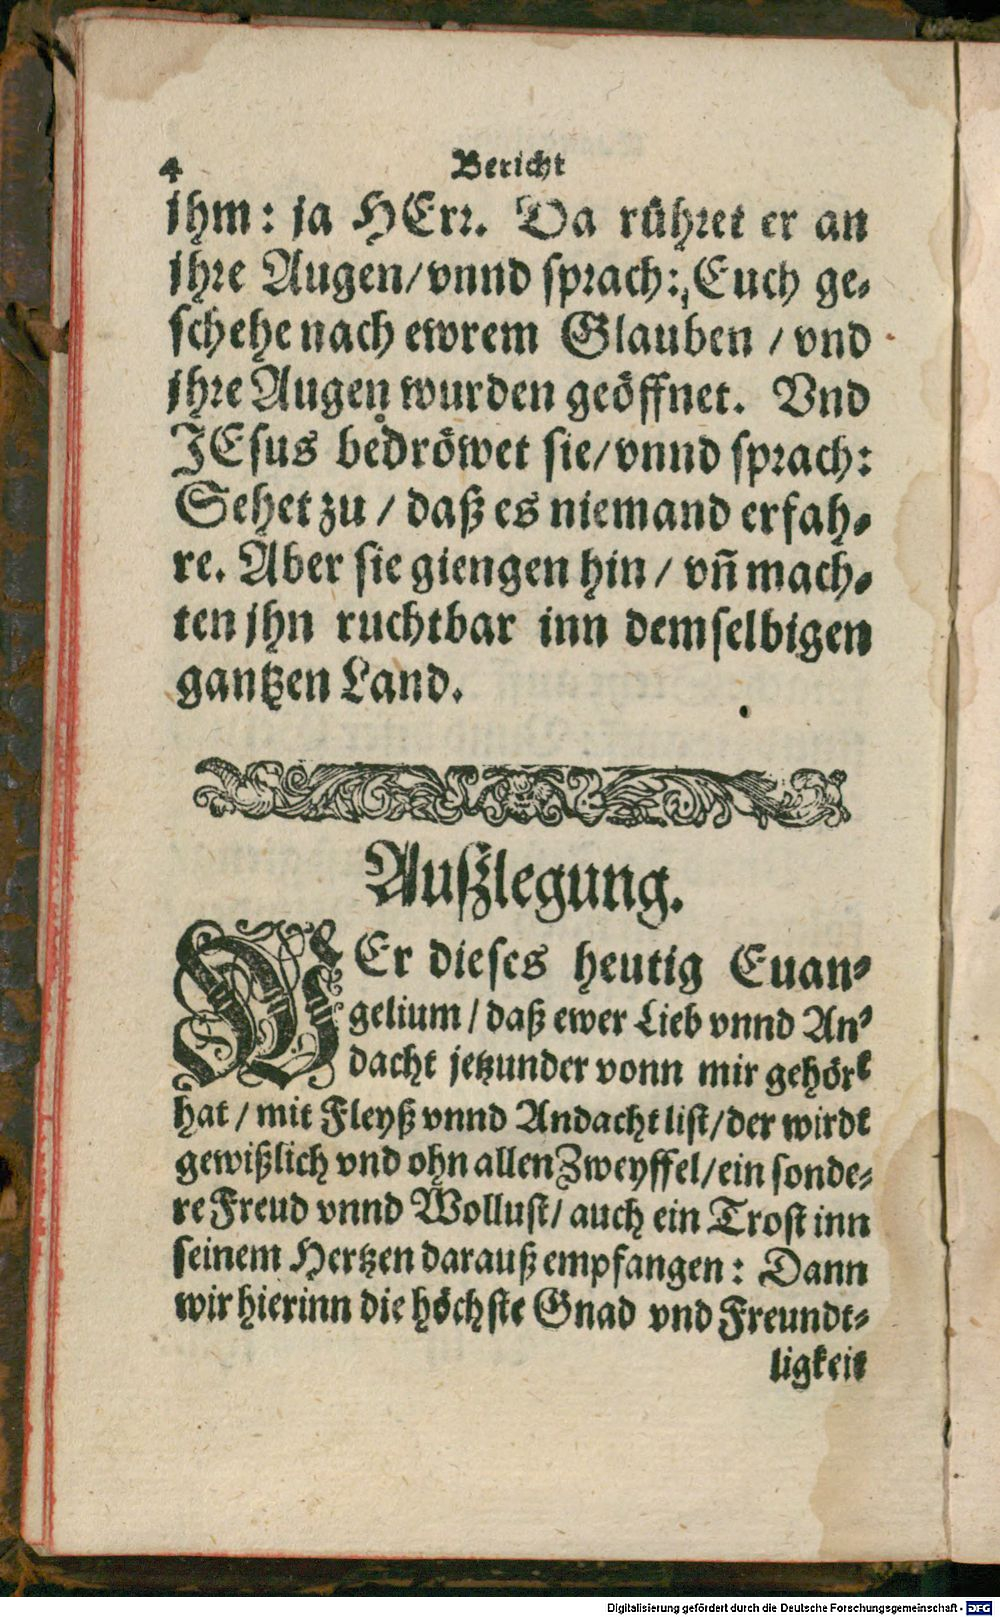 4 Bericht
jhm: ja HErr. Da rühret er an
jhre Augen/vnnd sprach: Euch ge-
schehe nach ewrem Glauben / vnd
jhre Augen wurden geöffnet. Vnd
JEsus bedröwet sie/vnnd sprach:
Sehet zu / daß es niemand erfah-
re. Aber sie giengen hin / vñ mach-
ten jhn ruchtbar inn demselbigen
gantzen Land.
Außlegung.
WEr dieses heutig Euan-
gelium / daß ewer Lieb vnnd An-
dacht jetzunder vonn mir gehört
hat / mit Fleyß vnnd Andacht list/der wirdt
gewißlich vnd ohn allen Zweyffel/ein sonde-
re Freud vnnd Wollust/ auch ein Trost inn
seinem Hertzen darauß empfangen: Dann
wir hierinn die höchste Gnad vnd Freundt-
ligkeit
Digitalisierung gefördert durch die Deutsche Forschungsgemeinschaft - DFG